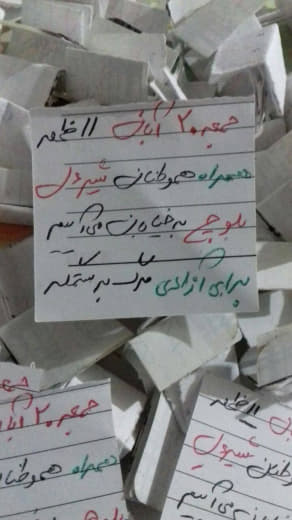 جمعه ۲۰ آبان ۱۱ ظهر
همراه هموطنان شیردل
بلوچ به خیابان می‌آییم
برای آزادی مرگ بر ستمگر
جمعه ۲۰ آبان
همراه هموطنان
۱۱ ظهر
هموطنان شیردل
به خیابان می‌آییم